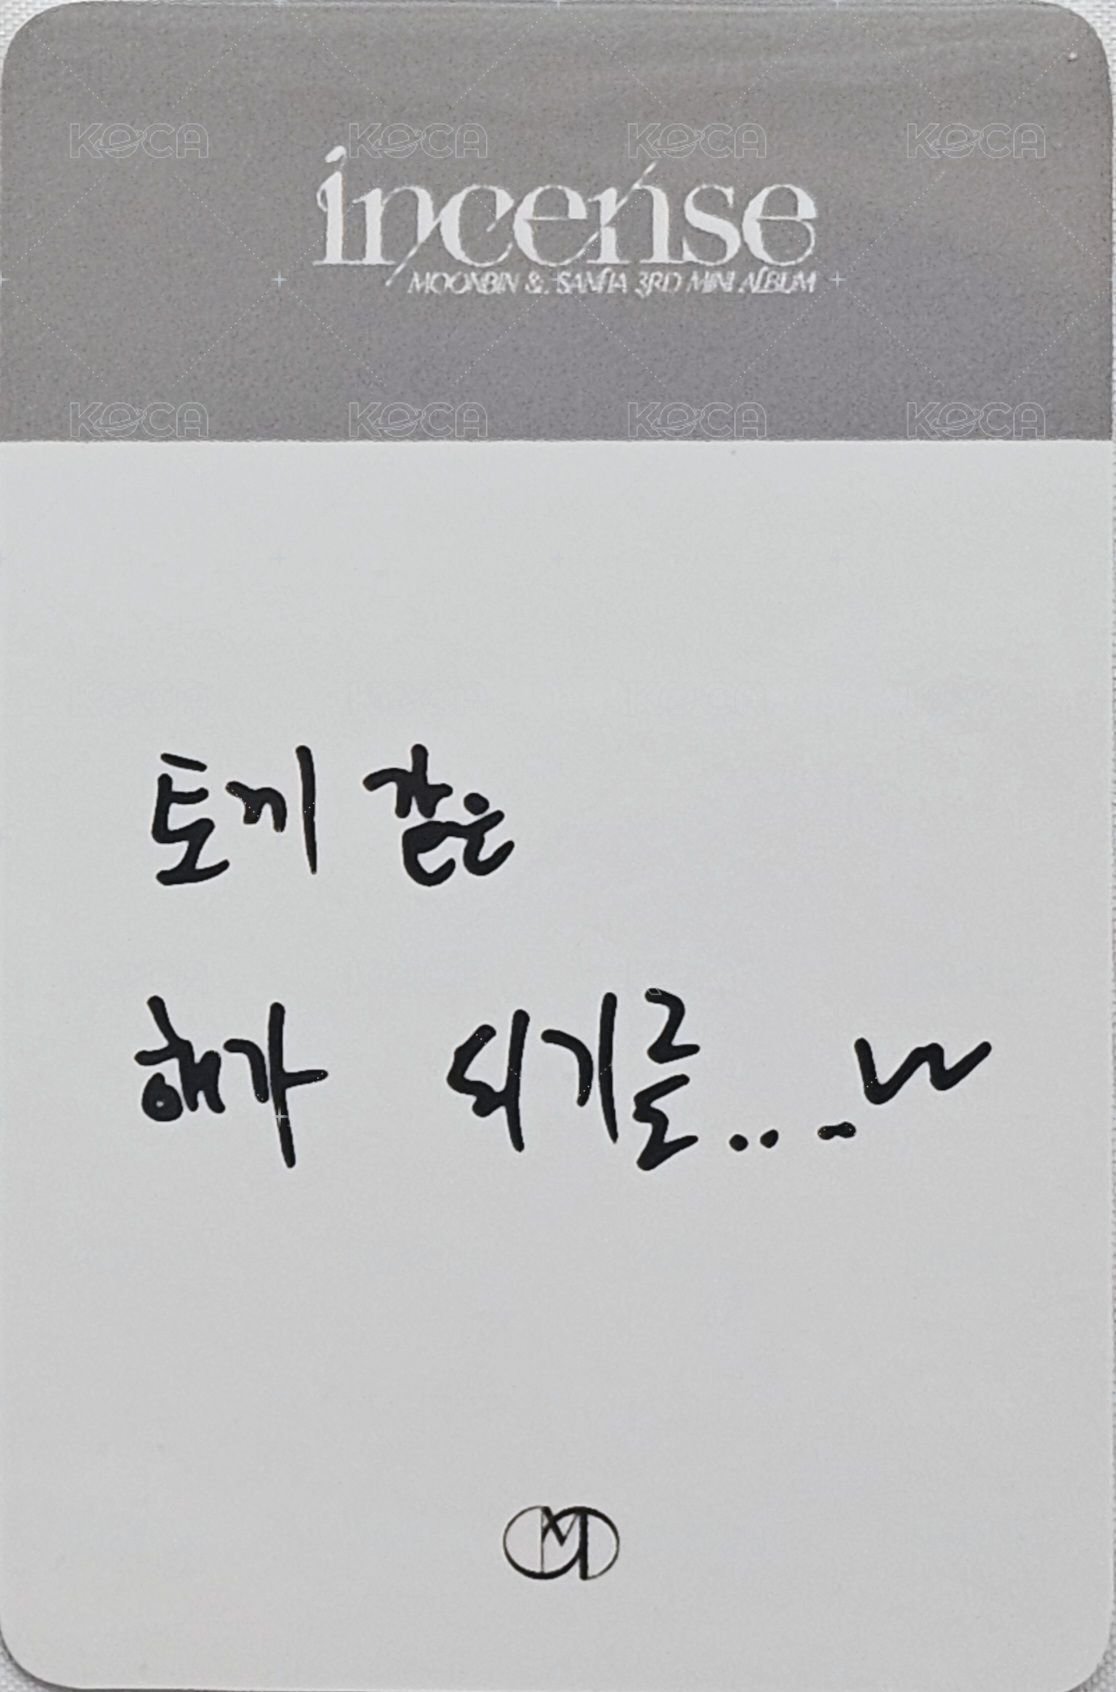 KOCA KOCA KOCA KOCA
incense
MOONBIN & SANHA 3RD MINI ALBUM
KOCA KOCA KOCA KOCA
KOCA KOCA KOCA KOCA
토끼 같은
해가 되기를...~